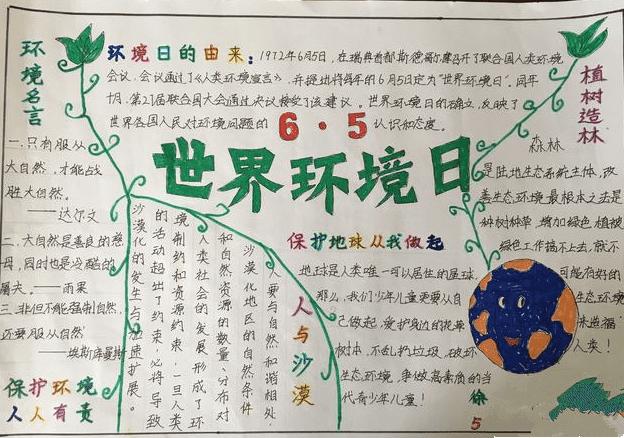 环境名言
一.只有服从
大自然,才能战
胜大自然。
——达尔文
二.大自然是善良的慈
母,同时也是冷酷的
屠夫。——雨果
三.非但不能强制自然,
还要服从自然。
——埃斯库曼斯
保护环境
人人有责
环境日的由来:1972年6月5日,在瑞典首都斯德哥尔摩召开了联合国人类环境
会议,会议通过了《人类环境宣言》,并提出将每年的6月5日定为"世界环境日"。同年
10月,第27届联合国大会通过决议接受了该建议。世界环境日的确立,反映了
世界各国人民对环境问题的 6·5 认识和态度。
世界环境日
人与沙漠
人要与自然和谐相处.
沙漠化地区的自然条件
和自然资源的数量、分布对
人类社会的发展形成了环
境制约和资源约束,一旦人类
的活动超出了约束,必将导致
沙漠化的发生与加速扩展。
保护地球从我做起
地球是人类唯一可以居住的星球,
那么,我们少年儿童更要从自
己做起,爱护身边的花草
树木,不乱扔垃圾,破坏
生态环境,争做高素质的当
代奇少年儿童!
植树造林
森林
是陆地生态系统主体,改
善生态环境最根本之法是
种树种草,增加绿色植被
绿色工作搞不上去,就不
可能有好的
生态环境
来造福
人类!
徐
5